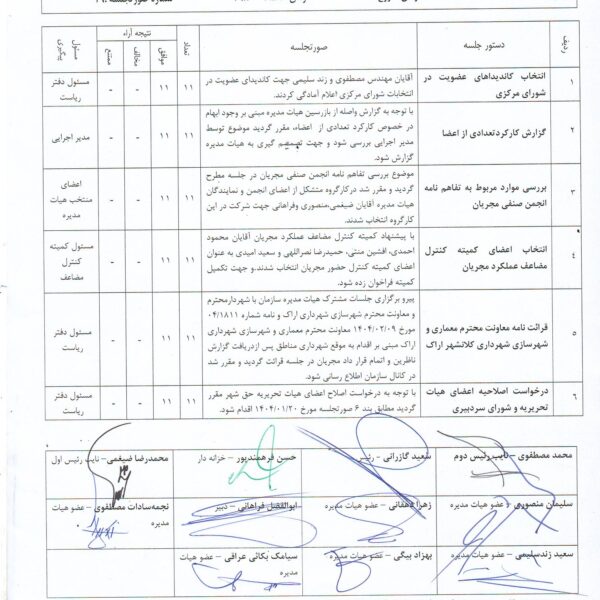 ردیف
دستور جلسه
صورتجلسه
تعداد
نتیجه آراء
موافق
مخالف
ممتنع
مسئول پیگیری
۱
انتخاب کاندیداهای عضویت در
شورای مرکزی
آقایان مهندس مصطفوی و زند سلیمی جهت کاندیدای عضویت در
انتخابات شورای مرکزی اعلام آمادگی کردند.
۱۱
۱۱
-
-
مسئول دفتر
ریاست
۲
گزارش کارکردتعدادی از اعضا
با توجه به گزارش واصله از بازرسین هیات مدیره مبنی بر وجود ابهام
در خصوص کارکرد تعدادی از اعضاء، مقرر گردید موضوع توسط
مدیر اجرایی بررسی شود و جهت تصمیم گیری به هیات مدیره
گزارش شود.
۱۱
۱۱
-
-
مدیر اجرایی
۳
بررسی موارد مربوط به تفاهم نامه
انجمن صنفی مجریان
موضوع بررسی تفاهم نامه انجمن صنفی مجریان در جلسه مطرح
گردید و مقرر شد درکارگروه متشکل از اعضای انجمن و نمایندگان
هیات مدیره آقایان ضیغمی،منصوری وفراهانی جهت شرکت در این
کارگروه انتخاب شدند.
۱۱
۱۱
-
-
اعضای
منتخب هیات
مدیره
۴
انتخاب اعضای کمیته کنترل
مضاعف عملکرد مجریان
با پیشنهاد کمیته کنترل مضاعف عملکرد مجریان آقایان محمود
احمدی، افشین منتی، حمیدرضا نصراللهی و سعید امیدی به عنوان
اعضای کمیته کنترل حضور مجریان انتخاب شدند.و جهت تکمیل
کمیته فراخوان زده شود.
۱۱
۱۱
-
-
مسئول کمیته
کنترل
مضاعف
۵
قرائت نامه معاونت محترم معماری و
شهرسازی شهرداری کلانشهر اراک
پیرو برگزاری جلسات مشترک هیات مدیره سازمان با شهردارمحترم
و معاونت محترم شهرسازی شهرداری اراک و نامه شماره ۰۴/۱۸۱۱
مورخ ۱۴۰۴/۰۲/۰۹ معاونت محترم معماری و شهرسازی شهرداری
اراک مبنی بر اقدام به موقع شهرداری مناطق پس ازدریافت گزارش
ناظرین و اتمام قرار داد مجریان در جلسه قرائت گردید و مقرر شد
در کانال سازمان اطلاع رسانی شود.
۱۱
۱۱
-
-
مسئول دفتر
ریاست
۶
درخواست اصلاحیه اعضای هیات
تحریریه و شورای سردبیری
با توجه به درخواست اصلاح اعضای هیات تحریریه حق شهر مقرر
گردید مطابق بند ۶ صورتجلسه مورخ ۱۴۰۴/۰۱/۲۰ اقدام شود.
۱۱
۱۱
-
-
مسئول دفتر
ریاست
محمد مصطفوی – نایب رئیس دوم
سعید گازرانی – رئیس
حسن فرهمندپور – خزانه دار
محمدرضا ضیغمی – نایب رئیس اول
سلیمان منصوری – عضو هیات مدیره
زهرا دهقانی – عضو هیات مدیره
ابوالفضل فراهانی – دبیر
نجمه‌سادات مصطفوی – عضو هیات
مدیره
سعید زندسلیمی – عضو هیات مدیره
بهزاد بیگی – عضو هیات مدیره
سیامک بکائی عراقی – عضو هیات
مدیره